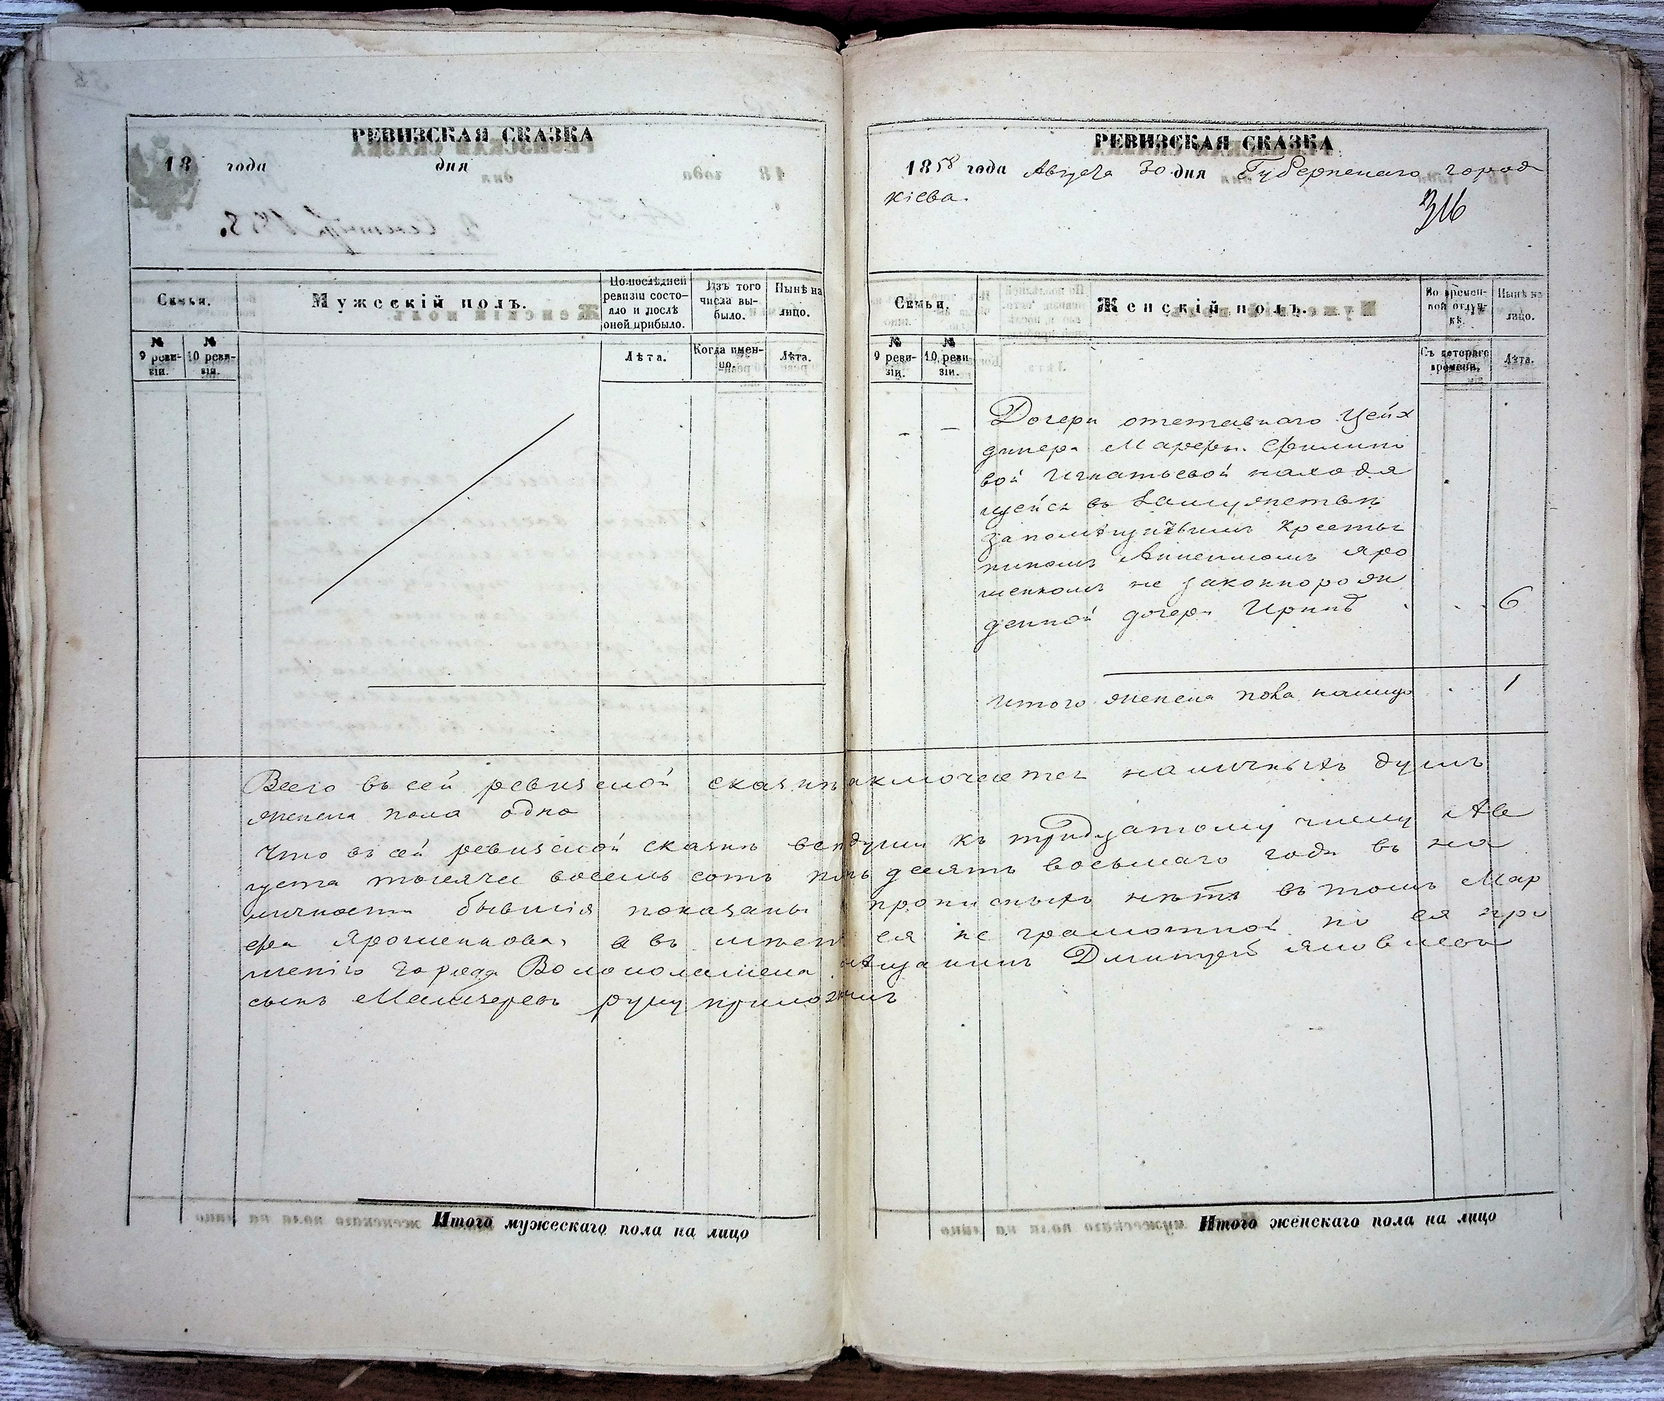 РЕВИЗСКАЯ СКАЗКА
18 года дня
Семьи.
Мужескій полъ.
По послѣдней ревизіи состояло и послѣ оной прибыло.
Изъ того числа выбыло.
Нынѣ на лицо.
№ 9 ревизіи.
№ 10 ревизіи.
Лѣта.
Когда именно.
Лѣта.
РЕВИЗСКАЯ СКАЗКА
1858 года Августа 30 дня Губернскаго города
Кіева.
316
Семьи.
Женскій полъ.
Во временной отлучкѣ.
Нынѣ на лицо.
№ 9 ревизіи.
№ 10 ревизіи.
Съ котораго времени.
Лѣта.
Дочери отставнаго Цейх
Марфы Филипо
вой Игнатьевой находя
щейся въ замужетвѣ
за помѣщичьимъ Крестья
ниномъ Яро
шенкомъ не законнорож
денной дочери Иринѣ 6
Итого женска пола налицо 1
Всего въ сей ревизской сказкѣ заключается наличныхъ душъ
женска пола одна
Что въ сей ревизской сказкѣ всѣ души къ тридцатому числу Ав
густа тысяча восемь сотъ пять десятъ восьмаго года въ на
личности бывшія показаны и прописныхъ нѣтъ въ томъ Мар
фа Ярошенкова, а вмѣсто ея не грамотной по ея про
шенію города Волоколамска мѣщанинъ Дмитрей Яковлевъ
сынъ руку приложилъ
Итого мужескаго пола на лицо
Итого женскаго пола на лицо